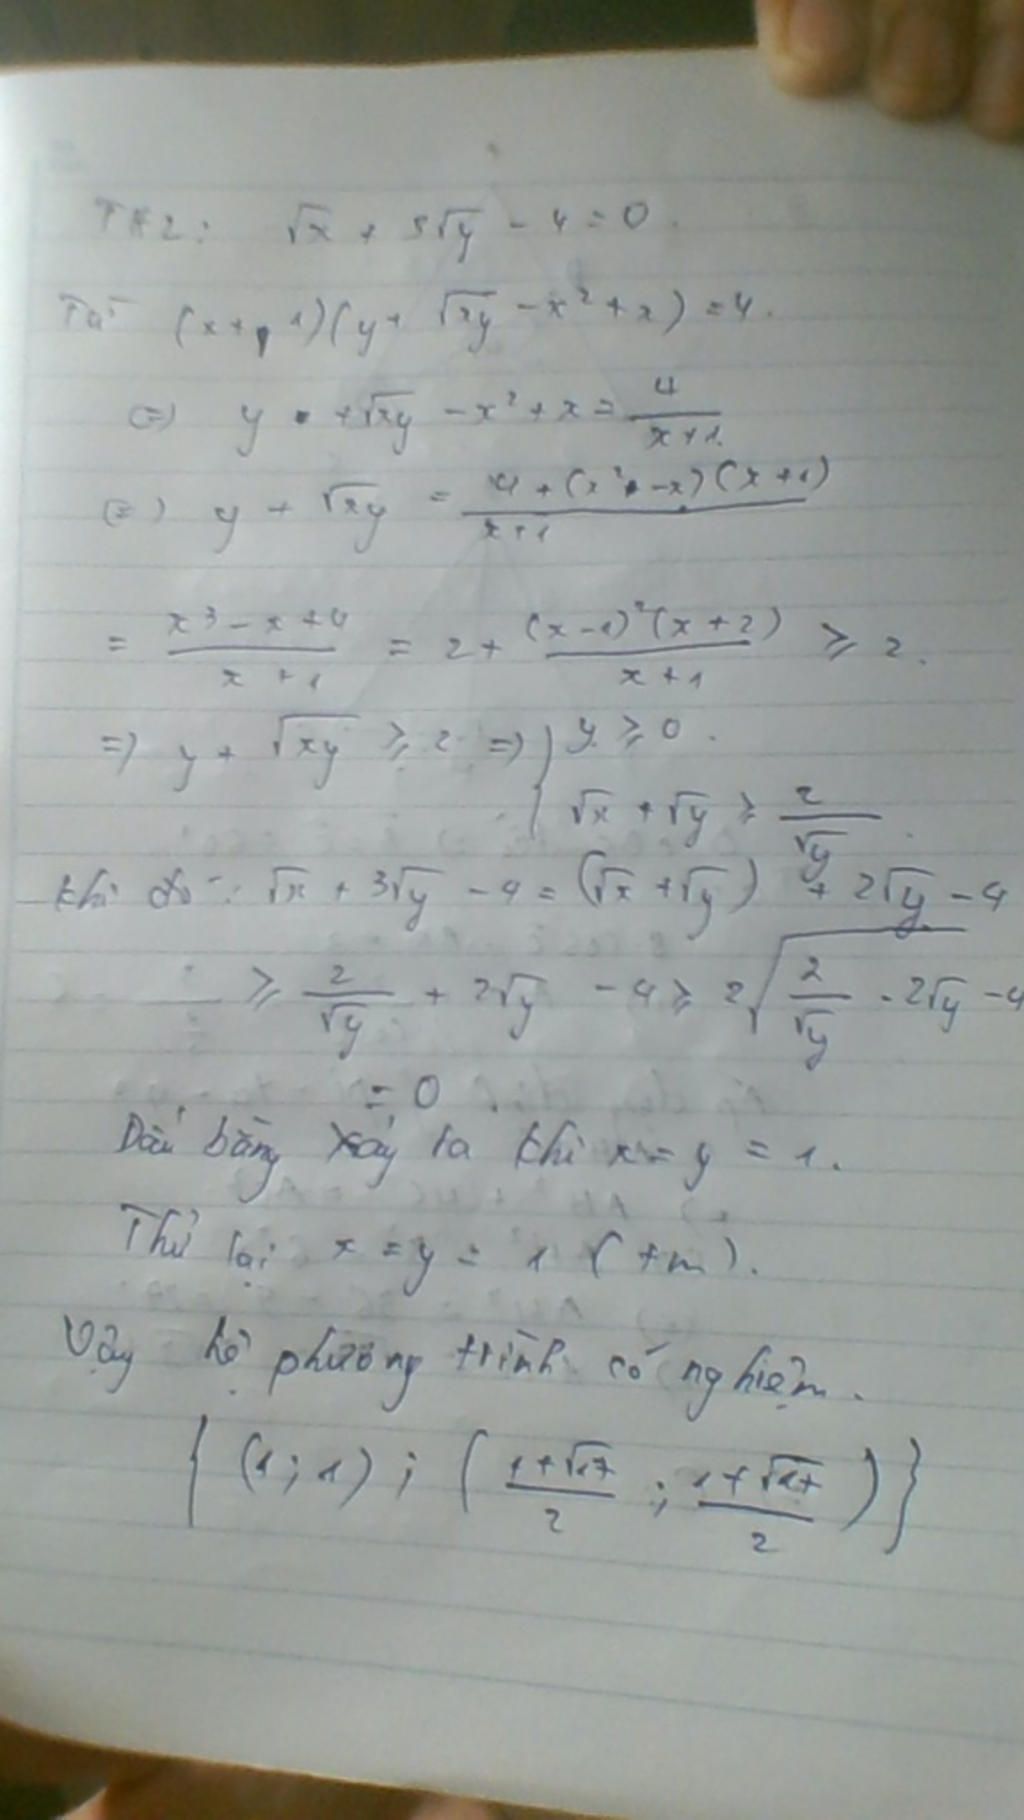 TH2: √x + 3√y - 4 = 0.
Từ (x+1)(y + √xy - x² + x) = 4.
(=) y + √xy - x² + x = 4/(x+1)
(=) y + √xy = (4 + (x² - x)(x+1))/(x+1)
= (x³ - x + 4)/(x + 1) = 2 + ((x-1)²(x+2))/(x+1) ≥ 2.
=) y + √xy ≥ 2 =) { y ≥ 0.
√x + √y ≥ 2/√y.
Khi đó: √x + 3√y - 4 = (√x + √y) + 2√y - 4
≥ 2/√y + 2√y - 4 ≥ 2√(2/√y . 2√y) - 4
= 0
Dấu bằng xảy ra khi x = y = 1.
Thử lại x = y = 1 (tm).
Vậy hệ phương trình có nghiệm.
{ (1; 1); ((1+√17)/2; (1+√17)/2) }